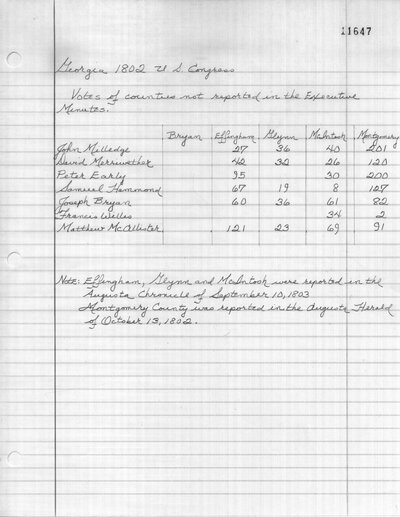 11647
Georgia 1802 U S. Congress
Votes of counties not reported in the Executive
Minutes.
Bryan Effingham Glynn McIntosh Montgomery
John Milledge 27 36 40 201
David Merriwether 42 32 26 120
Peter Early 95 30 200
Samuel Hammond 67 19 8 127
Joseph Bryan 60 36 61 82
Francis Welles 34 2
Matthew McAllister 121 23 69 91
Note: Effingham, Glynn and McIntosh were reported in the
Augusta Chronicle of September 10, 1803
Montgomery County was reported in the Augusta Herald
of October 13, 1802.